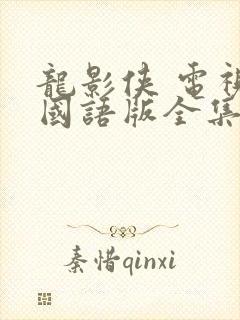 龍影俠 電視
國語版全集
秦惜qinxi